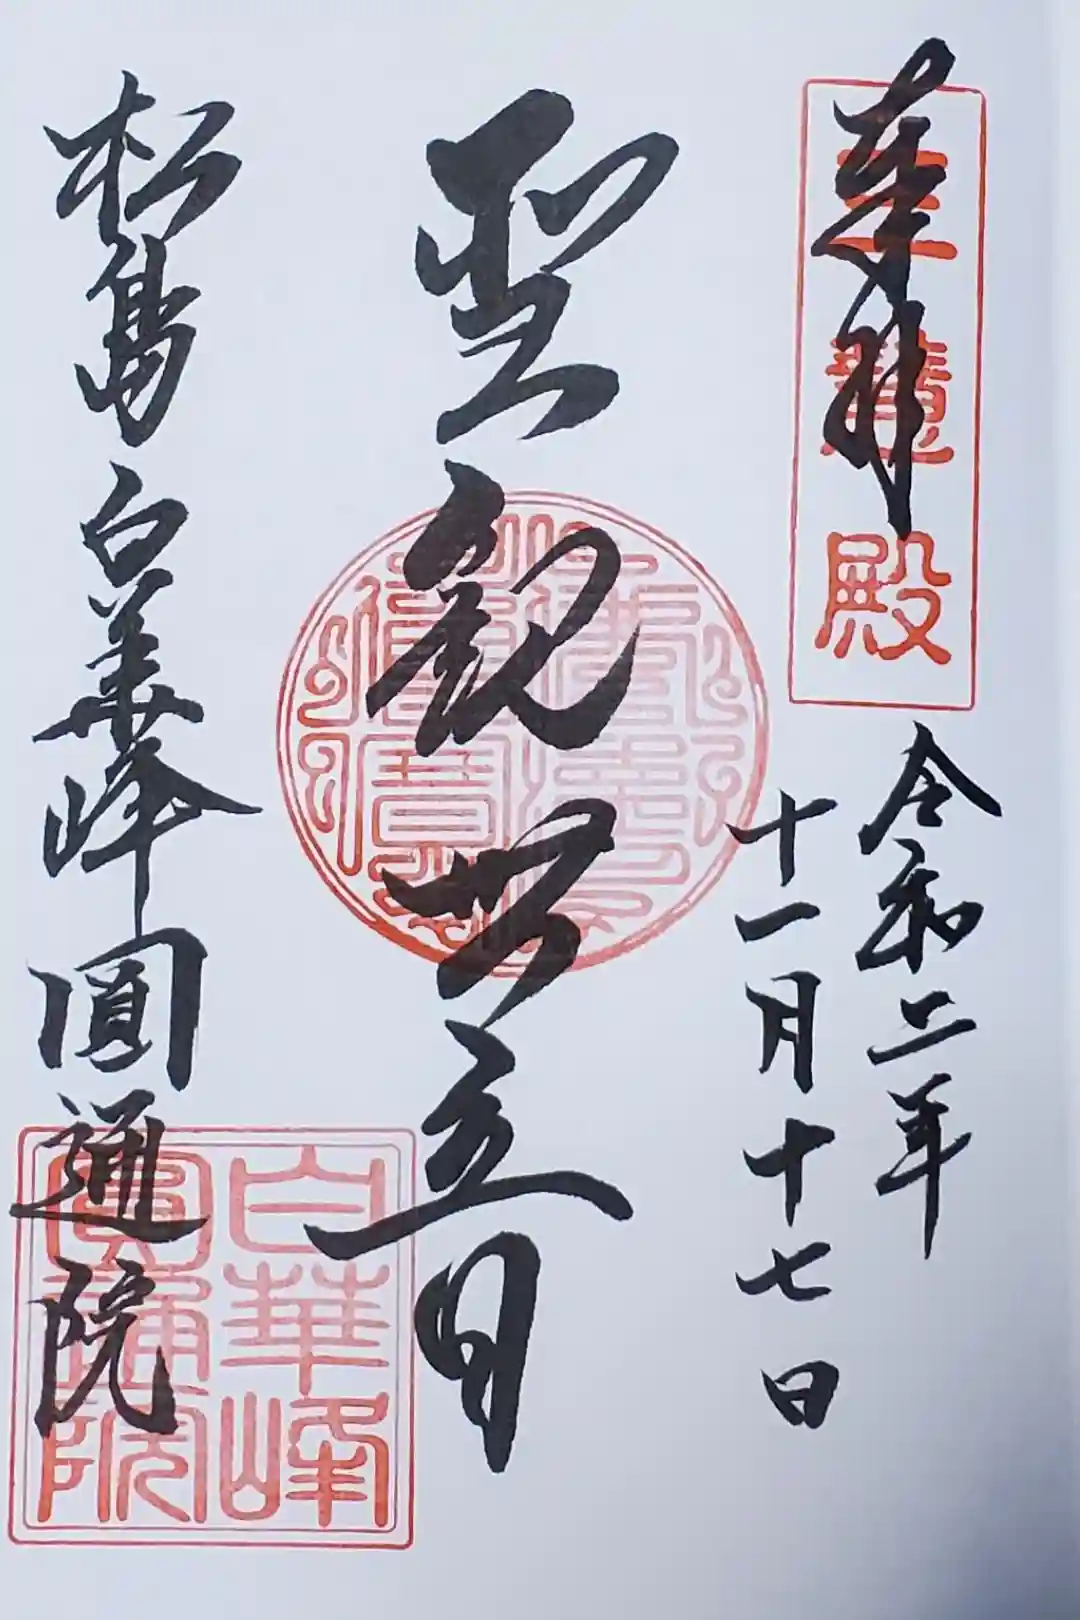 奉拝
三慧殿
令和二年
十一月十七日
聖観世音
松島 白華峰 圓通院
白華峰
圓通院